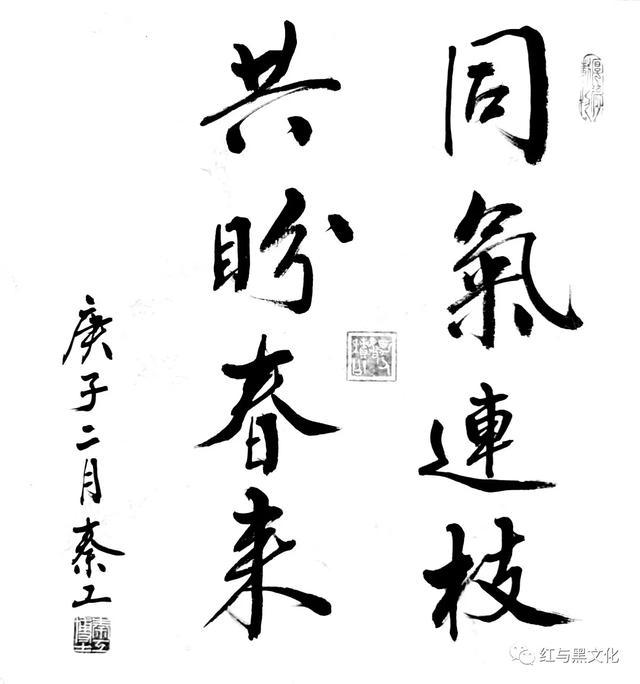 同氣連枝
共盼春来
庚子二月秦工
红与黑文化